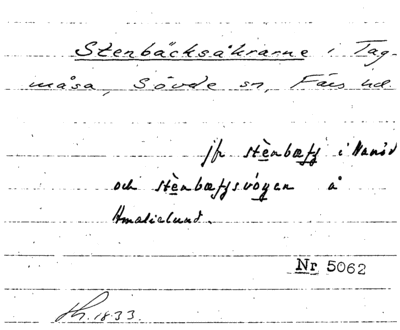 Stenbäcksåkrarne i Tag-
måsa, Sövde sn, Färs hd.
jfr stènbæʃʃ i Vanöd
och stènbæʃʃsvògen å
Amalielund.
Nr 5062
Th. 1833.